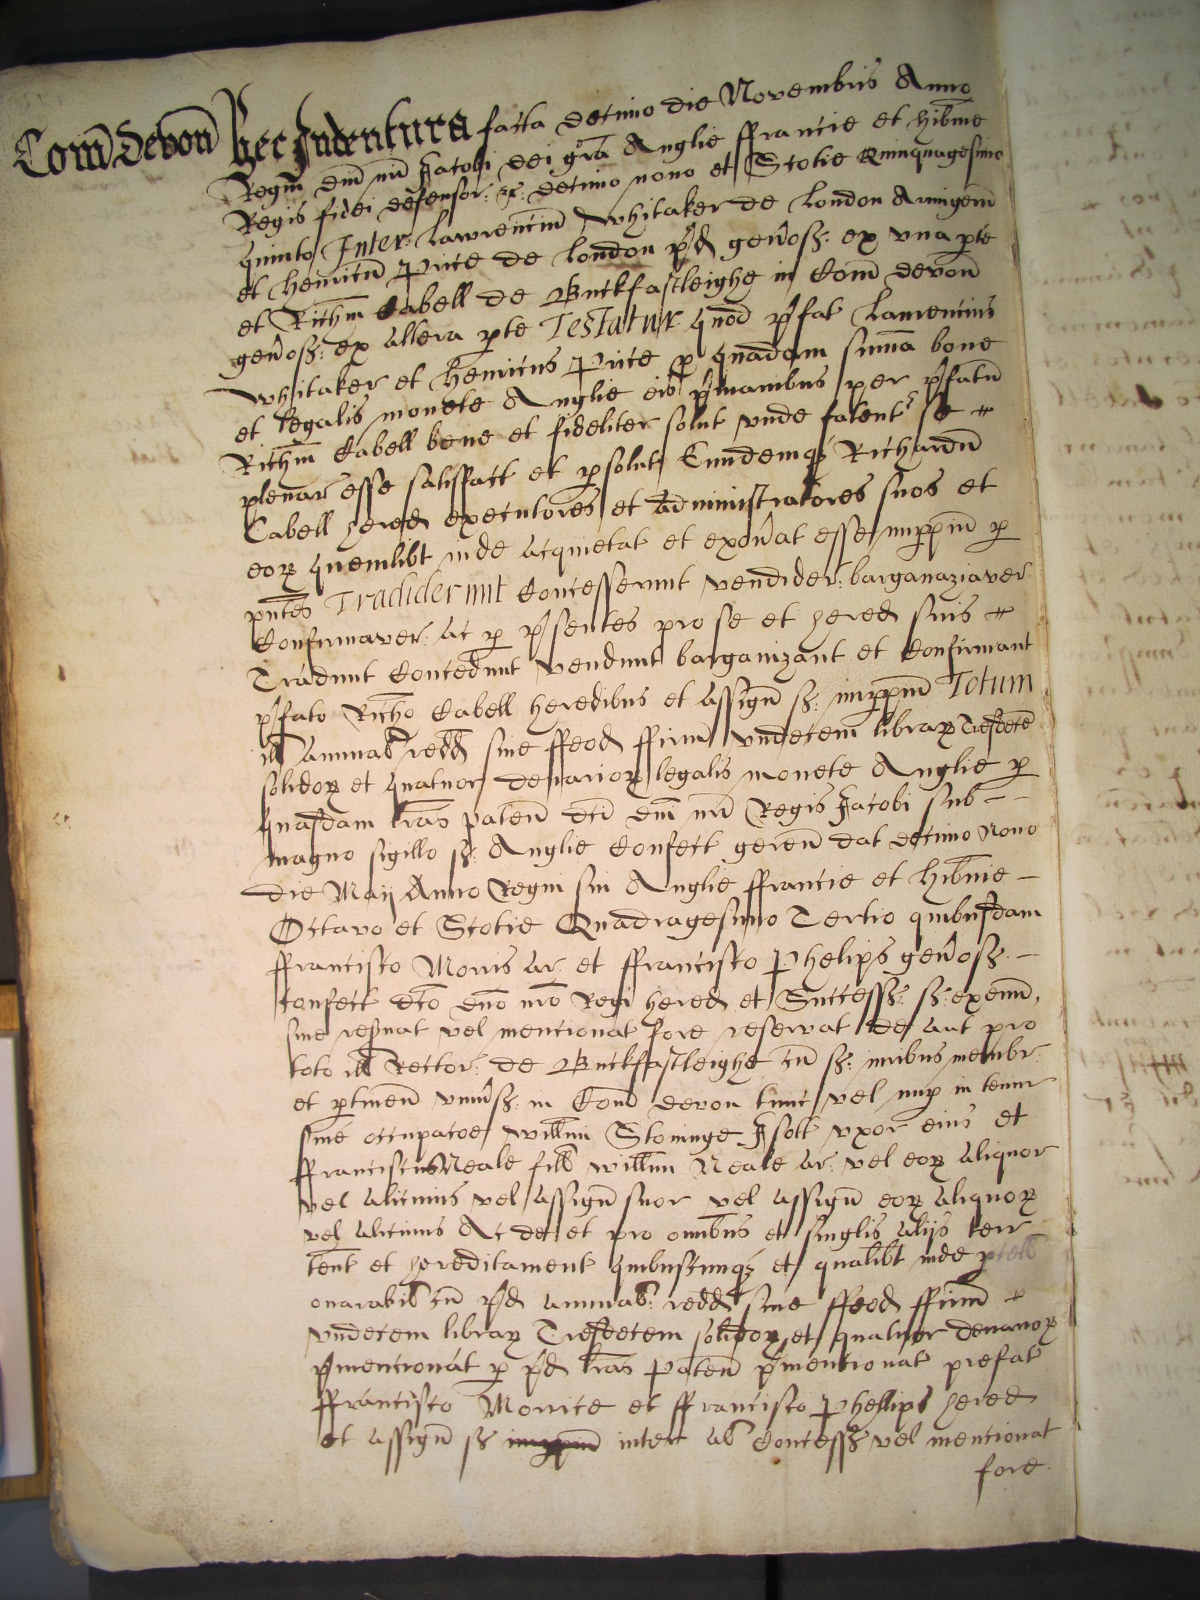 Com̄ Devon̄ Hec Indentura facta decimo die Novembris Anno
Regni dni nri Jacobi dei grā Anglie ffrancie et hib̄nie
Regis fidei defensor: &c: decimo nono et Scotie Quinquagesimo
quinto Inter Lawrenciū Whitaker de London Armigerū
et Henricū Price de London p̄d geńos: ex una p̄te
et Rich̄m Cabell de Buckfastleighe in Com̄ devon̄
geńos: ex altera p̄te Testatur quod p̄fat Laurencius
Whitaker et Henricus Price p̱ quadam sum̄a bone
et legalis monete Anglie eis p̄manibus per p̄fatū
Rich̄m Cabell bene et fideliter solut unde fatent se
plenar esse satisfact et p̱solut Eundemqȝ Richardū
Cabell hered executores et administratores suos et
eoꝝ quemlibt inde acquietat et exońat esse imp̱p̱m p̱
p̄ntes Tradiderunt Concesserunt vendider: barganaziaver
Confirmaver: ac p̱ p̄sentes pro se et hered suis
Tradunt Concedunt vendunt barganizant et Confirmant
p̄fato Rich̄o Cabell heredibus et assign̄ s: imp̱p̱m Totum
ill annual redd sive ffeod ffirm̄ undecem libraꝝ Tresdecē
solidoꝝ et quatuor denarioꝝ legalis monete Anglie p̱
quasdam l̄ras paten̄ dc̄i dn̄i nr̄i Regis Jacobi sub
magno sigillo s: Anglie Confect geren̄ dat decimo nono
die Maij Anno Regni sui Anglie ffrancie et hib̄nie
Octavo et Scotie Quadragesimo Tertio quibusdam
ffrancisco Morris ar: et ffrancisco Phelips geńos:
confect dc̄o dn̄o nr̄o Regi hered et Success: s: exeun̄,
sive res̄vat vel mencionat fore reservat de aut pro
toto ill Rector: de Buckfastleighe cū s: iuribus membr:
et p̱tinen̄ univ̄s: in Com̄ devon tunc vel nup̱ in tenur
sive occupac̄oe Will̄mi Stoninge Isott uxor eius et
ffranciscus Neale fil Will̄mi Neale ar: vel eoꝝ aliquor
vel alicuius vel assign̄ suor vel assign̄ eoꝝ aliquoꝝ
vel alicuius Ac de et pro omnibus et singlis alijs terr
ten̄t et hereditament quibuscumqȝ et qualibt inde p̱cell
onarabil cū p̄d annual: redd sive ffeod ffirm̄
undecem libraꝝ Tresdecem solidoꝝ et quatuor denarioꝝ
p̄mencionat p̱ p̄d l̄ras Paten̄ p̄mencionat prefat
ffrancisco Morrice et ffrancisco Phellips hered
et assign̄ s inter al Concess: vel mencionat
fore